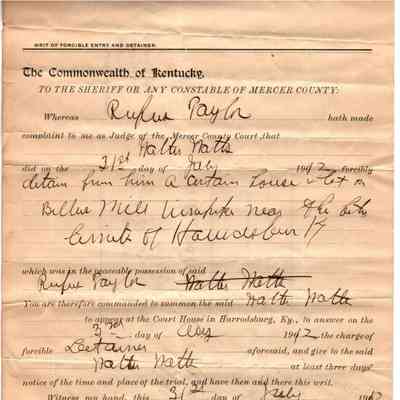 WRIT OF FORCIBLE ENTRY AND DETAINER.
The Commonwealth of Kentucky,
TO THE SHERIFF OR ANY CONSTABLE OF MERCER COUNTY:
Whereas Rufus Taylor hath made
complaint to me as Judge of the Mercer County Court, that
Walter Watts
did on the 31st day of July 1942 forcibly
detain from him A certain house & lot on
Bellows Mill turnpike near the
limits of Harrodsburg Ky
which was in the peaceable possession of said
Rufus Taylor Walter Watts
You are therefore commanded to summon the said Walter Watts
to appear at the Court House in Harrodsburg, Ky., to answer on the
3rd day of Aug 1942 the charge of
forcible Detainer aforesaid, and give to the said
Walter Watts at least three days'
notice of the time and place of the trial, and have then and there this writ.
Witness my hand, this 31st day of July 1942